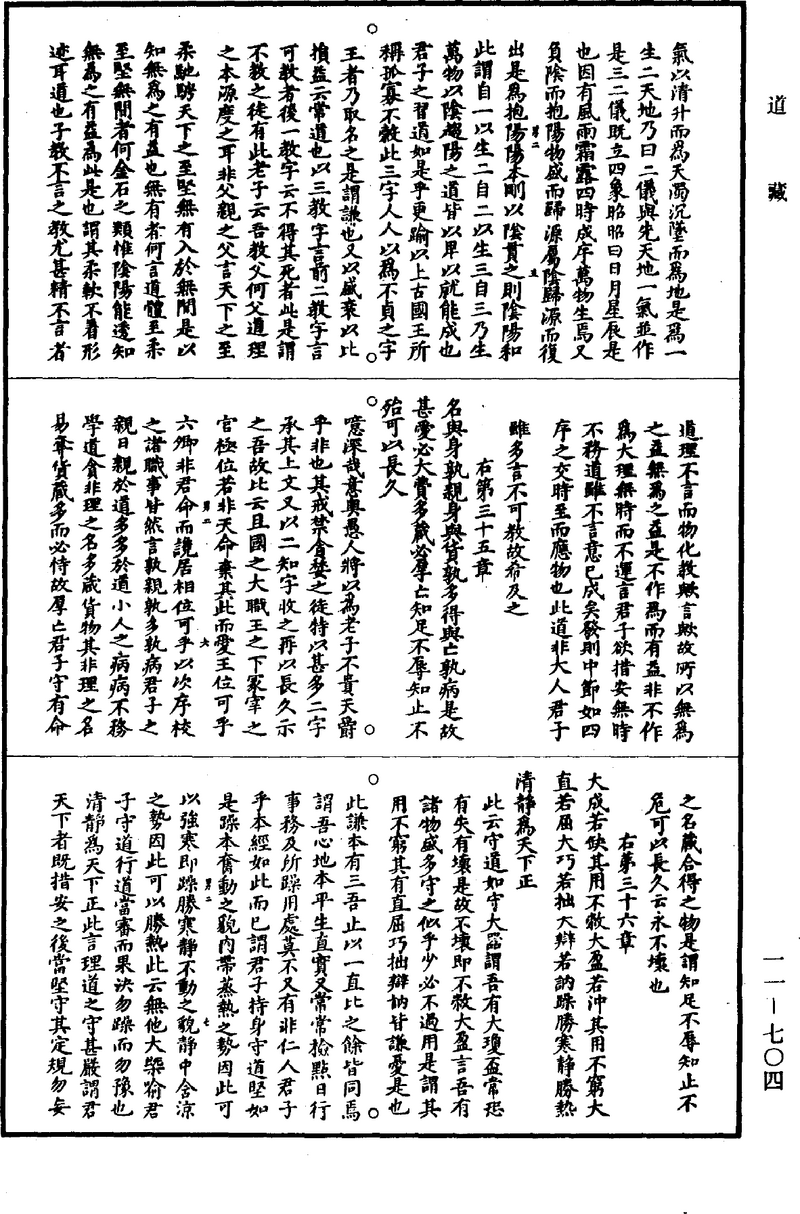 道藏
氣以清升而為天濁沉墜而為地是為一
生二天地乃曰二儀與先天地一氣並作
是三二儀既立四象昭昭曰日月星辰是
也因有風雨霜露四時成序萬物生焉又
負陰而抱陽物盛而歸源屬陰歸源而復
出是為抱陽陽本剛以陰貫之則陰陽和
此謂自一以生二自二以生三自三乃生
萬物以陰趨陽之道皆以卑以就能成也
君子之習道如是乎更踰以上古國王所
稱孤寡不穀此三字人人以為不貞之字
王者乃取名之是謂謙也又以盛衰以比
損益云常道也以三教字言前二教字言
可教者後一教字云不得其死者此是謂
不教之徒有此老子云吾教父何父道理
之本源度之耳非父親之父言天下之至
柔馳騁天下之至堅無有入於無間是以
知無為之有益也無有者何言道體至柔
至堅無間者何金石之類惟陰陽能透知
無為之有益為此是也謂其柔軟不著形
迹耳道也子教不言之教尤甚精不言者
道理不言而物化教歟言歟故所以無為
之益無為之益是不作為而有益非不作
為大理無時而不運言君子欲措安無時
不務道雖不言意已成矣發則中節如四
序之交時至而應物也此道非大人君子
雖多言不可教故希及之
右第三十五章
名與身孰親身與貨孰多得與亡孰病是故
甚愛必大費多藏必厚亡知足不辱知止不
殆可以長久
噫深哉意奧愚人將以為老子不貴天爵
乎非也其戒禁貪婪之徒特以甚多二字
承其上文又以二知字收之再以長久示
之吾故比云且國之大職王之下冢宰之
官極位若非天命棄其此而愛王位可乎
六卿非君命而謾居相位可乎以次序校
之諸職事皆然言孰親孰多孰病君子之
親日親於道多多於道小人之病病不務
學道貪非理之名多藏貨物其非理之名
易奪貨藏多而必恃故厚亡君子守有命
之名藏合得之物是謂知足不辱知止不
危可以長久云永不壞也
右第三十六章
大成若缺其用不敝大盈若沖其用不窮大
直若屈大巧若拙大辯若訥躁勝寒靜勝熱
清靜為天下正
此云守道如守大器謂吾有大瓊盃常恐
有失有壞是故不壞即不敝大盈言吾有
諸物盛多守之似乎少必不過用是謂其
用不窮其有直屈巧拙辯訥皆謙憂是也
此謙本有三吾止以一直比之餘皆同焉
謂吾心地本平生直實又常常檢點日行
事務及所躁用處莫不又有非仁人君子
乎本經如此而已謂君子持身守道堅如
是躁本奮動之貌內帶蒸熱之勢因此可
以強寒即躁勝寒靜不動之貌靜中含涼
之勢因此可以勝熱此云無他大槩喻君
子守道行道當審而果決勿躁而勿豫也
清靜為天下正此言理道之守甚嚴謂君
天下者既措安之後當堅守其定規勿妄
一一—七〇四